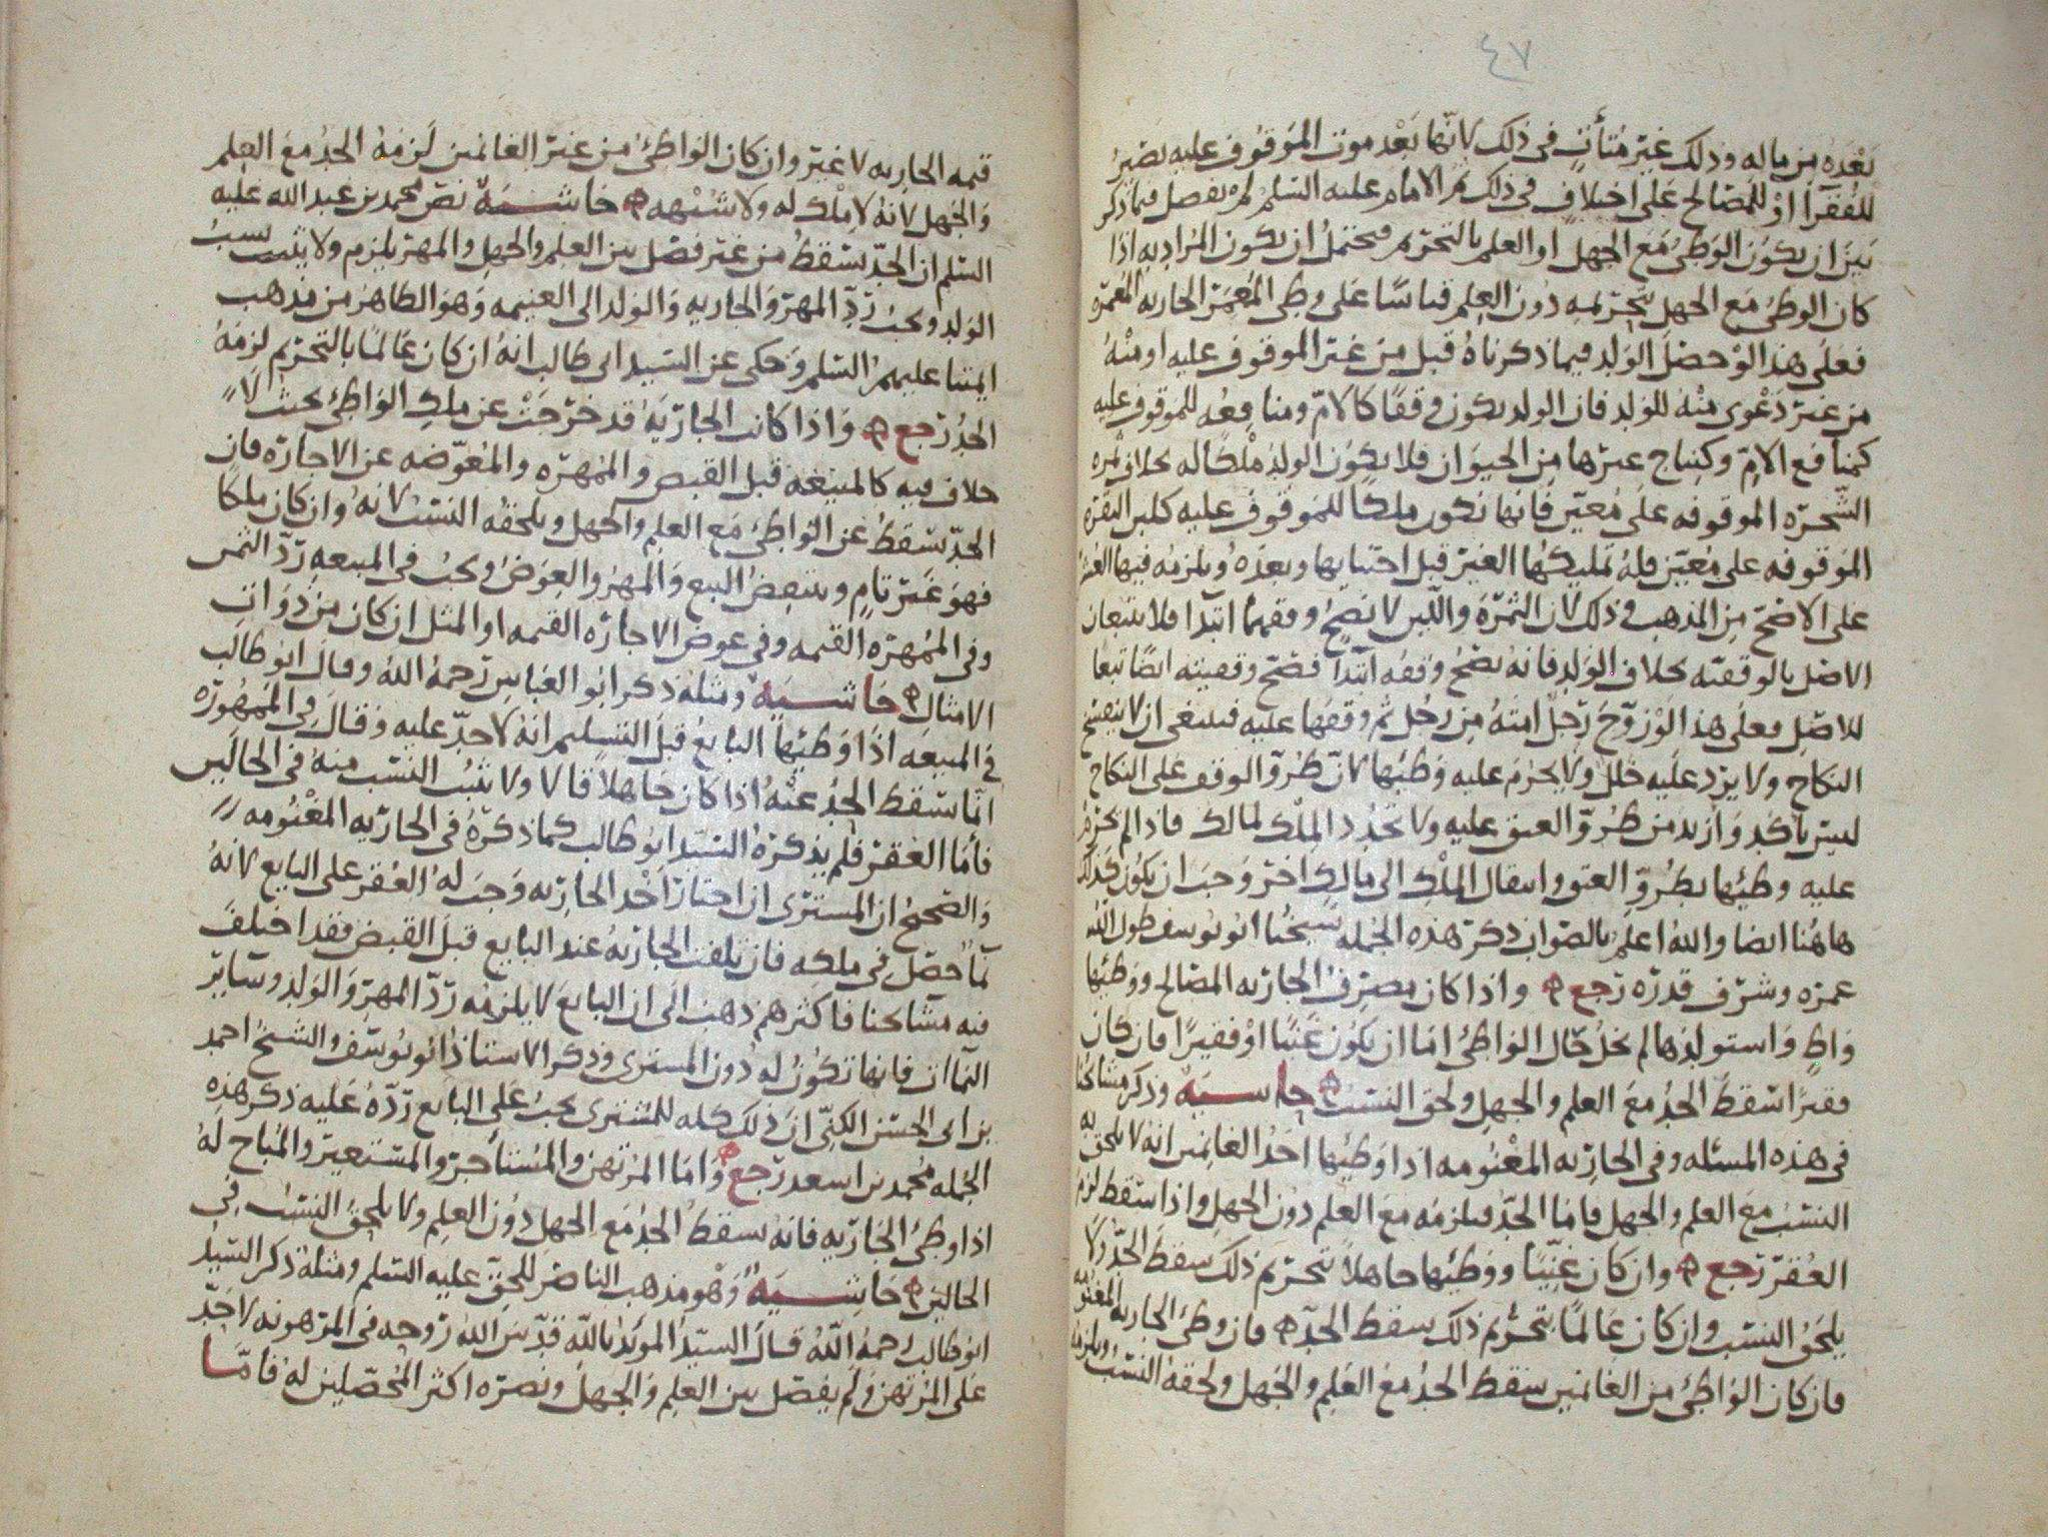 ٤٧
بعده من ماله وذلك غير متأت في ذلك لانها بعد موت الموقوف عليه تصير
للفقرآ او للمصالح على اختلاف في ذلك ثم الامام عليه السلم لم يفصل فيما ذكر
بين ان يكون الوطئ مع الجهل او العلم بالتحريم فيحتمل ان يكون المراد به اذا
كان الوطئ مع الجهل بتحريمه دون العلم قياسًا على وطئ المعمر الجاريه المعمره
فعلى هذا لو حصل الولد فيما ذكرناه قبل من غير الموقوف عليه او منه
من غير دعوى منه للولد فان الولد يكون وقفًا كالامّ ومنافعه للموقوف عليه
كمنافع الامّ وكنتاج غيرها من الحيوان فلا يكون الولد ملكًا له بخلاف ثمره
الشجره الموقوفه على معيّن فانها تكون ملكًا للموقوف عليه كلبن البقره
الموقوفه على معيّن فله تمليكها الغير قبل اجتنايها وبعده ويلزمه فيها العشر
على الاصحّ من المذهب في ذلك لان الثمرة واللبن لا تصح وقفهما ابتدا فلا يتبعان
الاصل بالوقفيّه بخلاف الولد فانه تصحّ وقفه ابتدآ فتصحّ وقفيته ايضًا تبعًا
للاصل فعلى هذا لو زوّج رجل امته من رجل ثم وقفها عليه فينبغي ان لا ينفسخ
النكاح ولا يرد عليه خلل ولا يحرم عليه وطئها لانّ طروّ الوقف على النكاح
ليس بآكد وازيد من طروّ العتق عليه ولا تجدد الملك لمالك فاذا لم يحرم
عليه وطئها بطروّ العتق وانتقال الملك الى مالك اخر وجب ان يكون كذلك
هاهنا ايضا والله اعلم بالصواب ذكر هذه الجمله شيخنا ابو يوسف طول الله
عمره وشرّف قدره رجع واذا كان مصرف الجاريه المصالح ووطئها
واطٍ واستولدها لم يخل حال الواطئ امّا ان يكون غنيًا او فقيرًا فان كان
فقيرًا سقط الحد مع العلم والجهل ولحق النسب حاشيه وذكر مشايخنا
في هذه المسئله وفي الجاريه المغنومه اذا وطئها احد الغانمين انه لا يلحق به
النسب مع العلم والجهل فاما الحدّ فيلزمه مع العلم دون الجهل واذا سقط لزم
العقر رجع وان كان غنيًا ووطئها جاهلاً بتحريم ذلك سقط الحدّ ولا
يلحق النسب وان كان عالمًا بتحريم ذلك سقط الحدّ فان وطئ الجاريه المغنومه
فان كان الواطئ من الغانمين سقط الحدّ مع العلم والجهل ولحقه النسب ويلزمه
قيمه الجاريه لا غير وان كان الواطئ من غير الغانمين لزمه الحد مع العلم
والجهل لانه لا ملك له ولا شبهه حاشيه نصّ محمد بن عبد الله عليه
السلم ان الحدّ يسقط من غير فصل بين العلم والجهل والمهر يلزم ولا يثبت نسب
الولد ويجب ردّ المهر والجاريه والولد الى الغنيمه وهو الظاهر من مذهب
ايمتنا عليهم السلم وحكى عن السيد ابى طالب انه ان كان عالمًا بالتحريم لزمه
الحد رجع واذا كانت الجاريه قد خرجت عن ملك الواطئ بحيث لا
خلاف فيه كالمبيعه قبل القبض والممهره والمعوّضه عن الاجاره فان
الحدّ يسقط عن الواطئ مع العلم والجهل ويلحقه النسب لانه وان كان ملكًا
فهو غير تام وينتقض البيع والمهر والعوض ويجب في المبيعه ردّ الثمن
وفي الممهره القيمه وفي عوض الاجاره القيمه او المثل ان كان من ذوات
الامثال حاشيه ومثله ذكر ابو العباس رحمه الله وقال ابو طالب
في المبيعه اذا وطئها البايع قبل التسليم انه لا حدّ عليه وقال في الممهوره
انما سقط الحد عنه اذا كان جاهلاً قالا ولا يثبت النسب منه في الحالين
فأما العقر فلم يذكره السيد ابو طالب كما ذكره في الجاريه المغنومه
والصحيح ان المشتري ان اختار اخذ الجاريه وجب له العقر على البايع لانه
نمآ حصل في ملكه فان تلفت الجاريه عند البايع قبل القبض فقد اختلف
فيه مشايخنا فاكثرهم ذهب الى ان البايع لا يلزمه ردّ المهر والولد وساير
النماآت فانها تكون له دون المشترى وذكر الاستاذ ابو يوسف والشيخ احمد
بن ابى الحسن الكنّي ان ذلك كله للمشترى يجب على البايع ردّه عليه ذكر هذه
الجمله محمد بن اسعد رجع واما المرتهن والمستأجر والمستعير والمباح له
اذا وطئ الجاريه فانه يسقط الحد مع الجهل دون العلم ولا يلحق النسب في
الحالين حاشيه وهو مذهب الناصر للحق عليه السلم ومثله ذكر السيد
ابو طالب رحمه الله قال السيّد المويد بالله قدّس الله روحه في المرهونه لا حدّ
على المرتهن ولم يفصل بين العلم والجهل ونصره اكثر المحصلين له فامّا